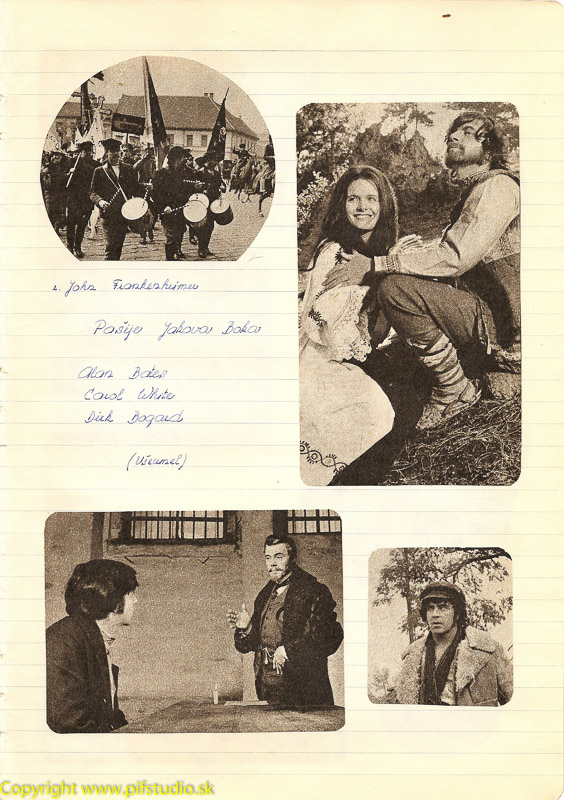 r. John Frankenheimer
Pašije Jakova Boka
Alan Bates
Carol White
Dirk Bogard
(Užrumel)
Copyright www.pifstudio.sk